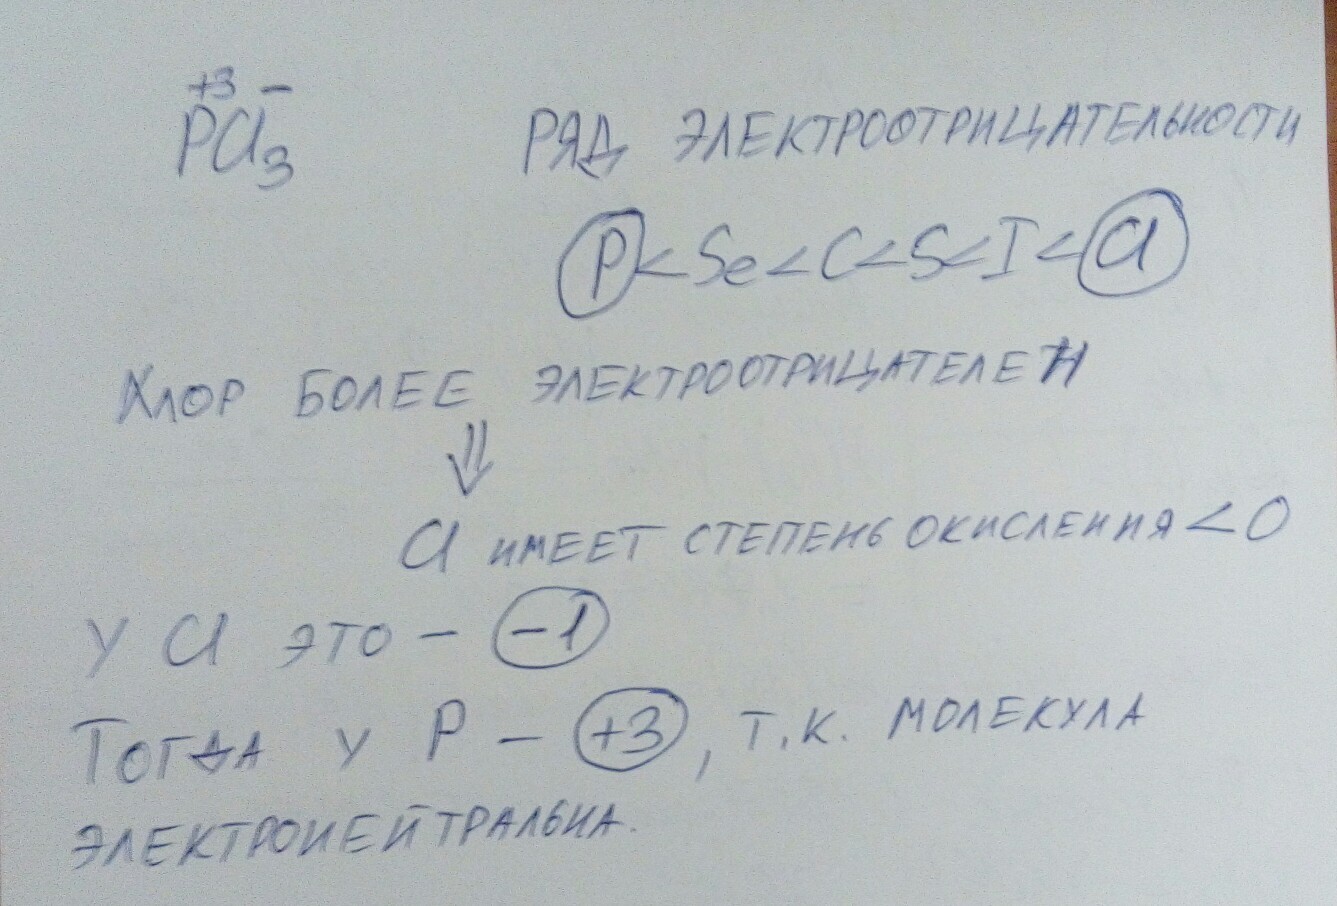 +3 −
PCl₃
РЯД ЭЛЕКТРООТРИЦАТЕЛЬНОСТИ
P<Se<C<S<I<Cl
ХЛОР БОЛЕЕ ЭЛЕКТРООТРИЦАТЕЛЕН
⇓
Cl ИМЕЕТ СТЕПЕНЬ ОКИСЛЕНИЯ <0
У Cl ЭТО – -1
ТОГДА У P – +3, Т.К. МОЛЕКУЛА
ЭЛЕКТРОНЕЙТРАЛЬНА.